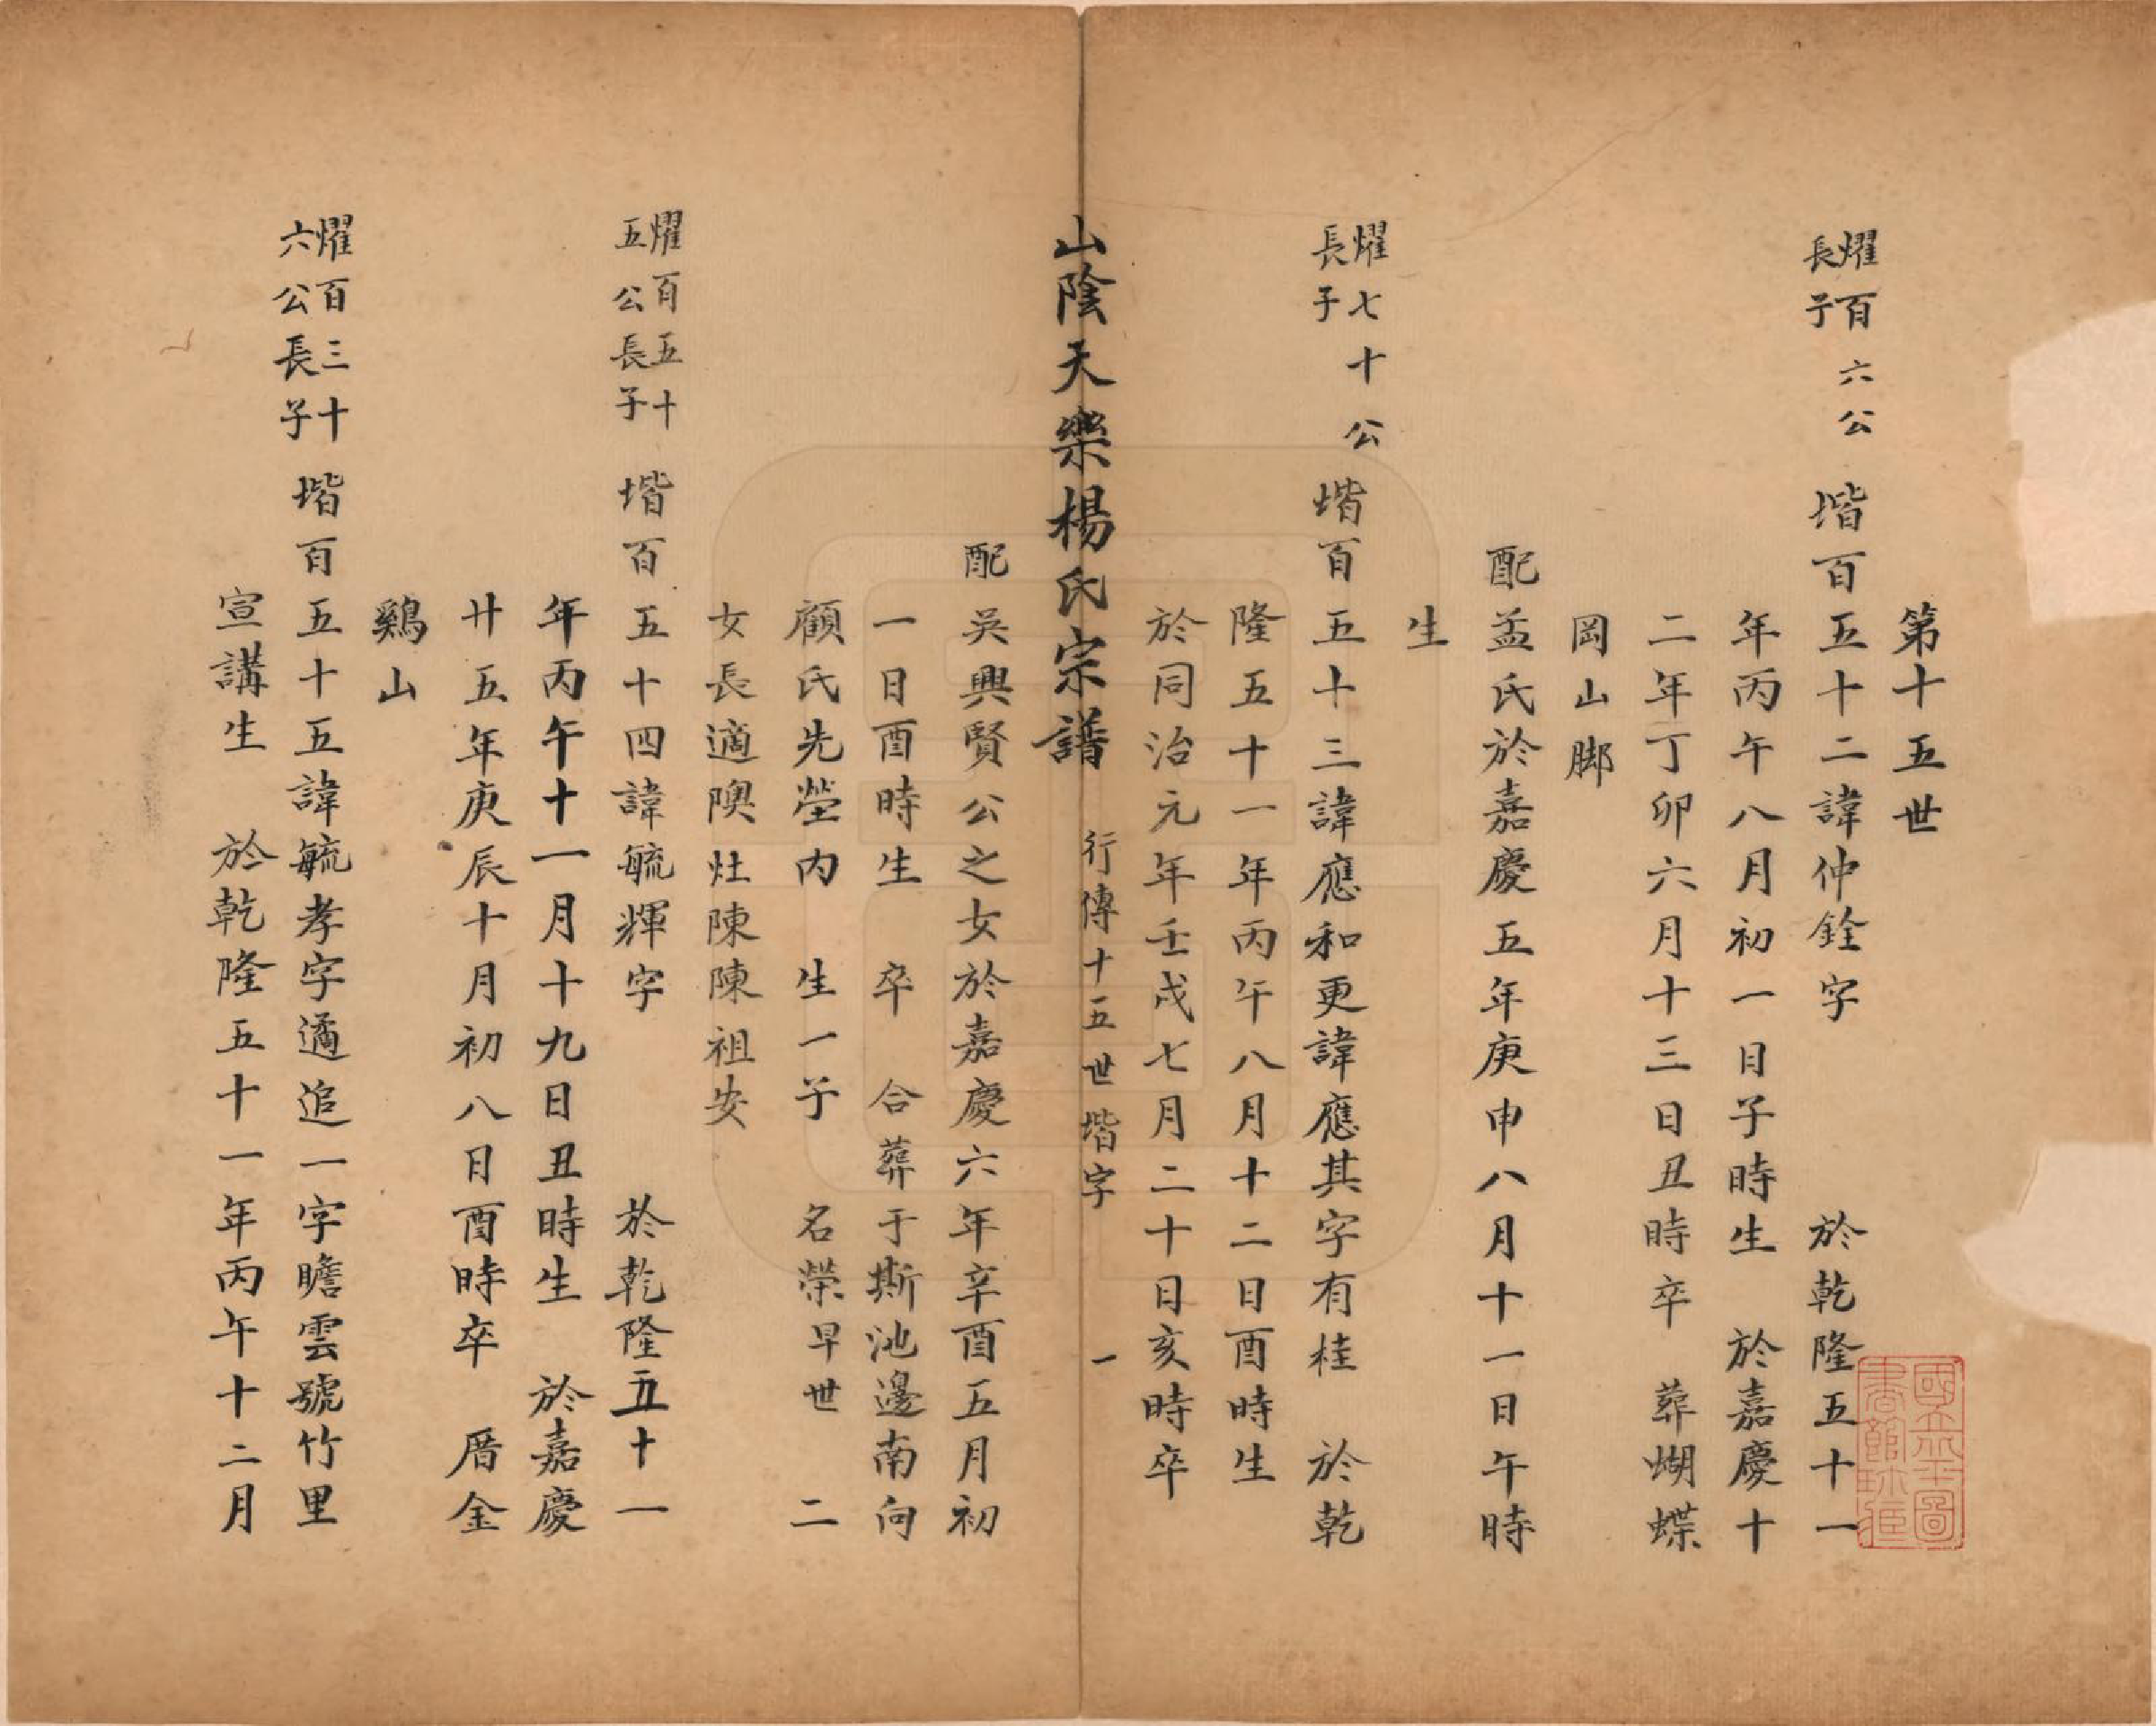 第十五世
耀百六公
長子
堦百五十二諱仲銓字 於乾隆五十一
年丙午八月初一日子時生 於嘉慶十
二年丁卯六月十三日丑時卒 葬蝴蝶
岡山脚
配孟氏於嘉慶五年庚申八月十一日午時
生
耀七十公
長子
堦百五十三諱應和更諱應其字有桂 於乾
隆五十一年丙午八月十二日酉時生
於同治元年壬戌七月二十日亥時卒
山陰天樂楊氏宗譜 行傳十五世堦字 一
配吳興賢公之女於嘉慶六年辛酉五月初
一日酉時生 卒 合葬于斯池邊南向
顧氏先塋內 生一子 名榮早世 二
女長適隩灶陳陳祖安
耀百五十
五公長子
堦百五十四諱毓輝字 於乾隆五十一
年丙午十一月十九日丑時生 於嘉慶
廿五年庚辰十月初八日酉時卒 厝金
鷄山
耀百三十
六公長子
堦百五十五諱毓孝字遹追一字瞻雲號竹里
宣講生 於乾隆五十一年丙午十二月
國立北平圖
書館珎藏